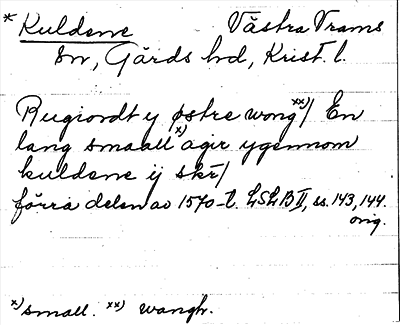 * Kuldene Västra Vrams
sn, Gärds hd, Krist. l.
Rugiordt y østre wong xx)/ En
lang smaall x) agir ygennom
kuldene ij skr/
förra delen av 1570-t. LSLB II, ss. 143, 144.
orig.
x) small. xx) wanghr.